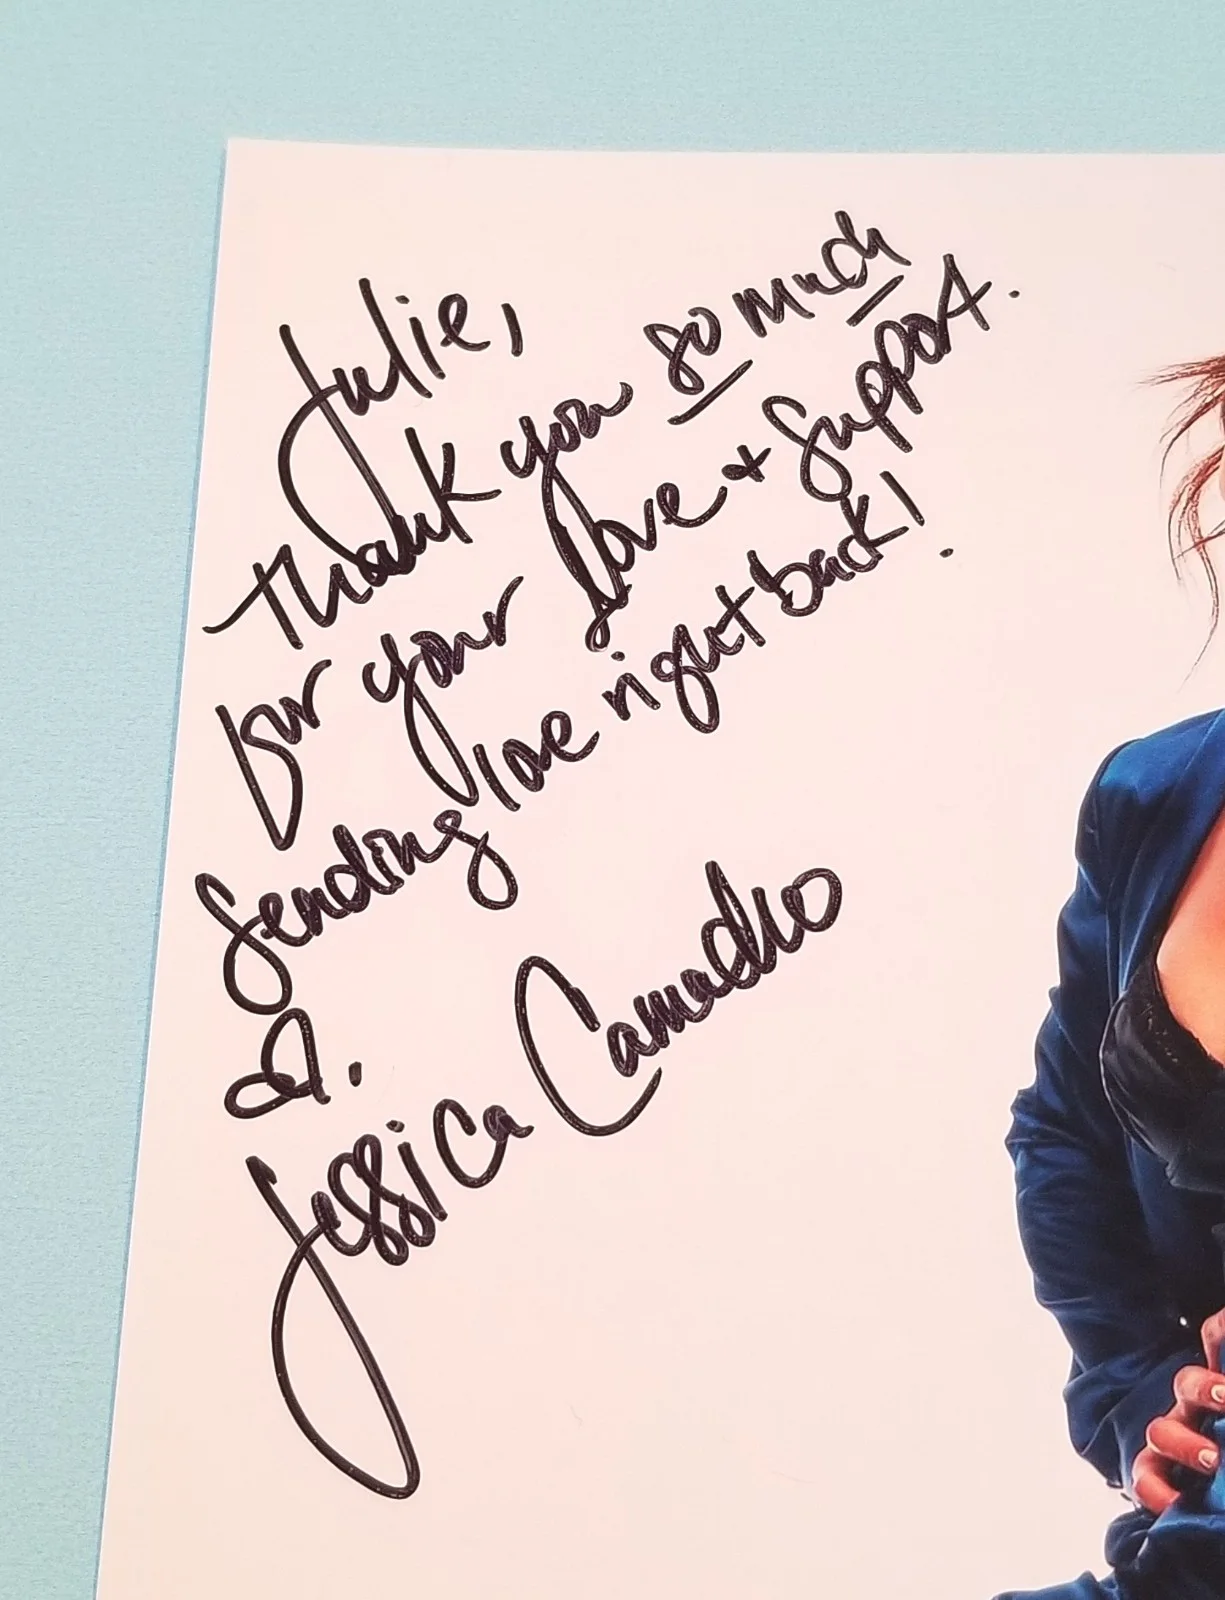 Julie,
Thank you so much
for your love + support.
Sending love right back!
Jessica Camacho